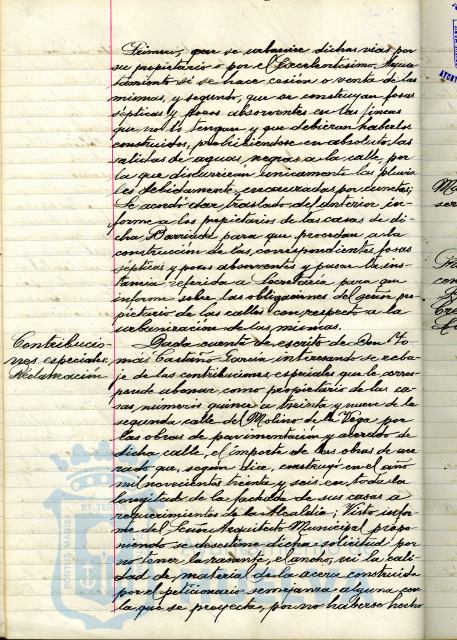 Primero, que se urbanice dichas vías por
su propietario o por el Excelentísimo Ayun-
tamiento si se hace cesión o venta de las
mismas, y segundo, que se construyan fosas
sépticas y pozos absorventes en las fincas
que no lo tengan y que debieran haberlos
construidos, prohibiéndose en absoluto las
salidas de aguas negras a la calle, por
la que discurrirán únicamente las pluvia-
les debidamente encauzadas por cunetas;
Se acordó dar traslado del anterior in-
forme a los propietarios de las casas de di-
cha Barriada para que procedan a la
construcción de las correspondientes fosas
sépticas y pozos absorventes y pasar la ins-
tancia referida a Secretaría para que
informe sobre las obligaciones del señor pro-
pietario de las calles con respecto a la
urbanización de las mismas.
Contribucio-
nes especiales.
Reclamación
Dada cuenta de escrito de Don To-
más Castaño García interesando se reba-
je de las contribuciones especiales que le corres-
ponde abonar como propietario de las ca-
sas, números quince a treinta y nueve de la
segunda calle del Molino de la Vega por
las obras de pavimentación y acerado de
dicha calle, el importe de las obras de ace-
rado que, según dice, construyó en el año
mil novecientos treinta y seis en toda la
longitud de la fachada de sus casas a
requerimientos de la Alcaldía; Visto infor-
me del Señor Arquitecto Municipal propo-
niendo se desestime dicha solicitud por
no tener la rasante, el ancho, ni la cali-
dad de material de la acera construida
por el peticionario semejanza alguna con
la que se proyecta, por no haberse hecho
PORTUS MARIS
ET TERRA